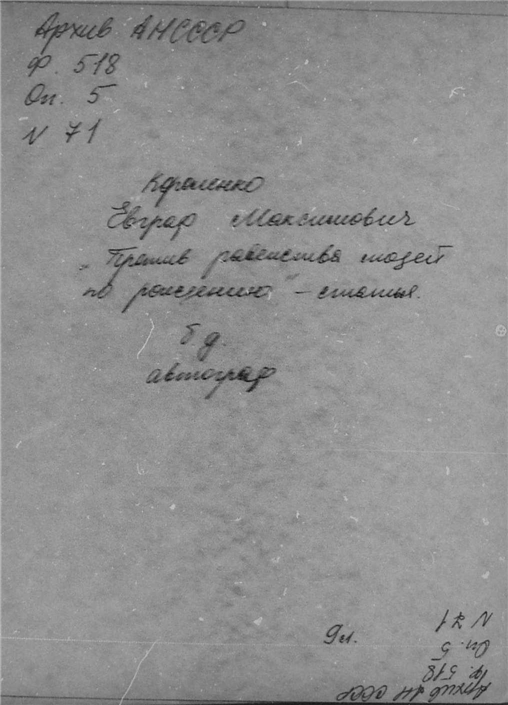 Архив АНСССР
Ф. 518
Оп. 5
N 71
Короленко
Евграф Максимович
„Против равенства людей
по рождению" – статья.
б.д.
автограф
9л.
Архив АН СССР
Ф. 518
Оп. 5
N 71